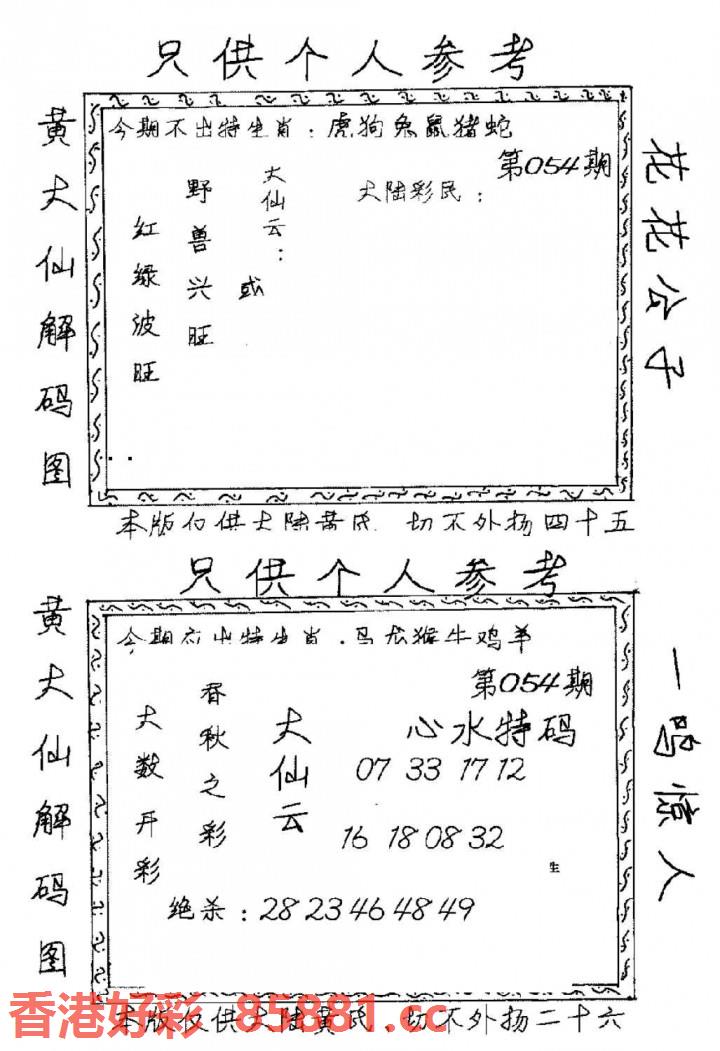 只供个人参考
黄大仙解码图
今期不出特生肖：虎狗兔鼠猪蛇
第054期
大陆彩民：
大仙云：
或
野兽兴旺
红绿波旺
花花公子
本版仅供大陆黄民 切不外扬四十五
只供个人参考
黄大仙解码图
今期应出特生肖．马龙猴牛鸡羊
第054期
心水特码
07 33 17 12
16 18 08 32
大仙云
春秋之彩
大数开彩
生
绝杀：28 23 46 48 49
一鸣惊人
本版仅供大陆黄民．切不外扬二十六
香港好彩 85881.cc